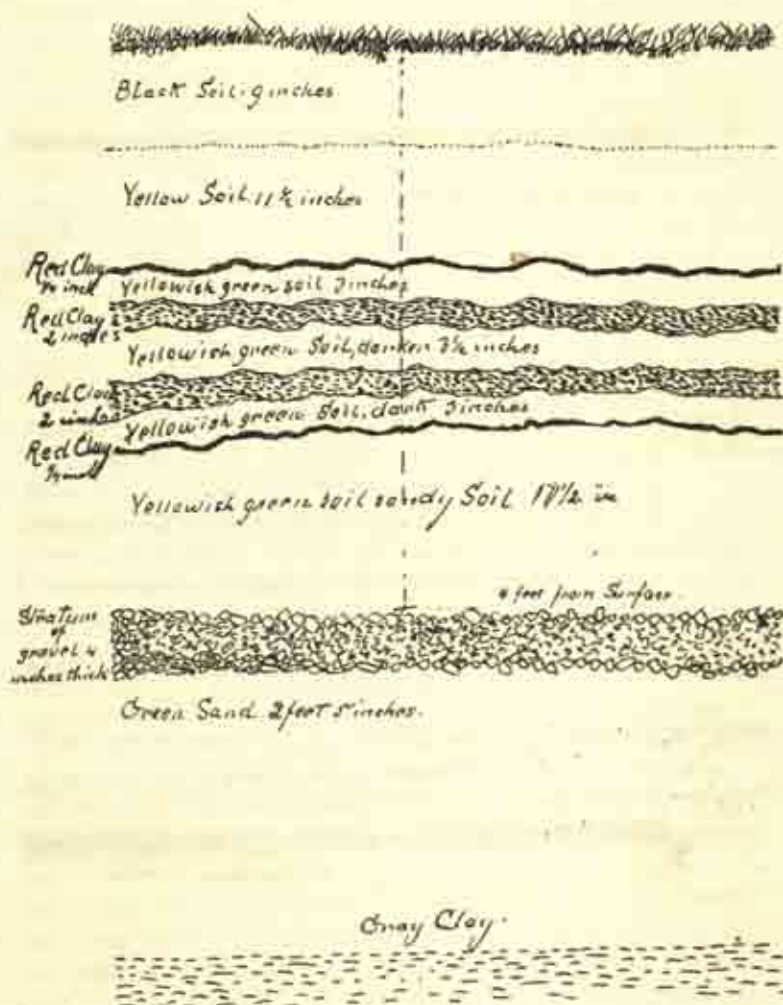 Black Soil. 9 inches
Yellow Soil. 11 ½ inches
Red Clay
¼ inch
Yellowish green soil 3 inches
Red Clay
2 inches
Yellowish green Soil, darker 3½ inches
Red Clay
2 inches
Yellowish green Soil, dark 3 inches
Red Clay
Yellowish green soil sandy Soil 1/2 in
4 feet from Surface.
Stratum
of
gravel 4
inches thick
Green Sand 2 feet 5 inches.
Gray Clay.